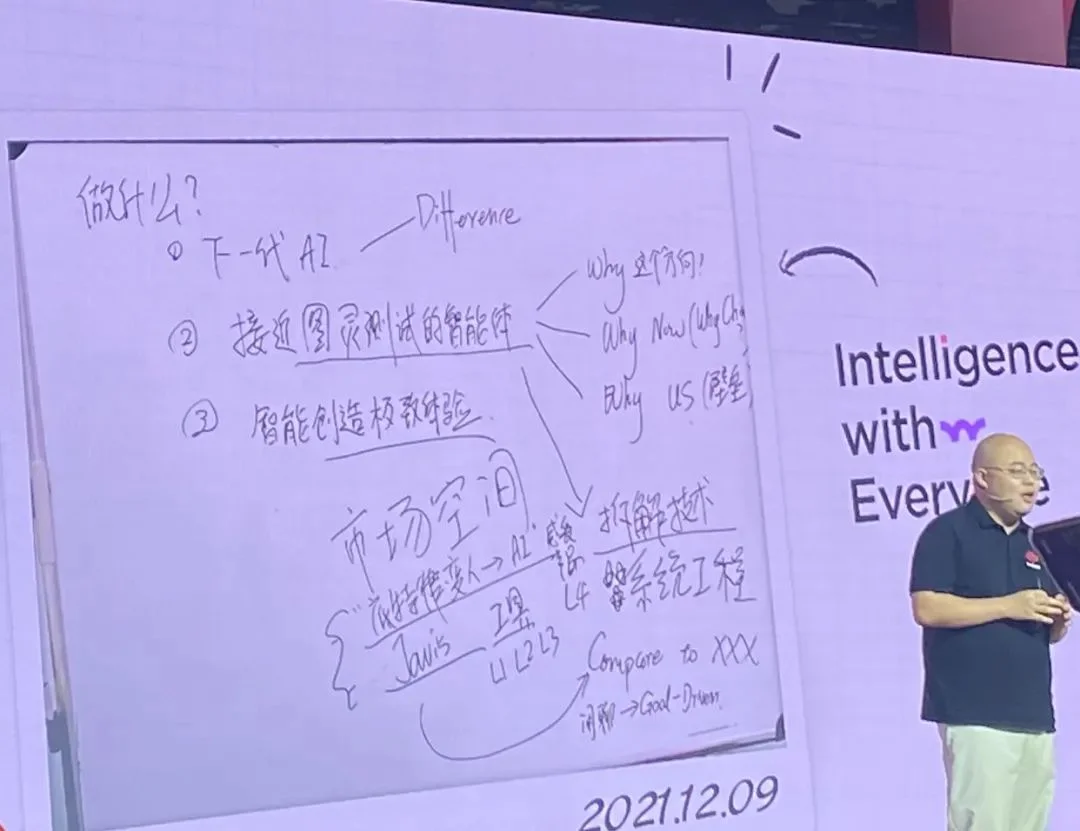 做什么?
① 下一代 AI — Difference
② 接近图灵测试的智能体
Why 这个方向?
Why Now (Why Ch
Why US (壁垒
③ 智能创造极致体验
市场空间
拆解技术
系统工程
变人→AI
L4
Javis 工具
L1 L2 L3
Compare to XXX
闲聊→Goal-Driven
2021.12.09
Intelligence
with
Every